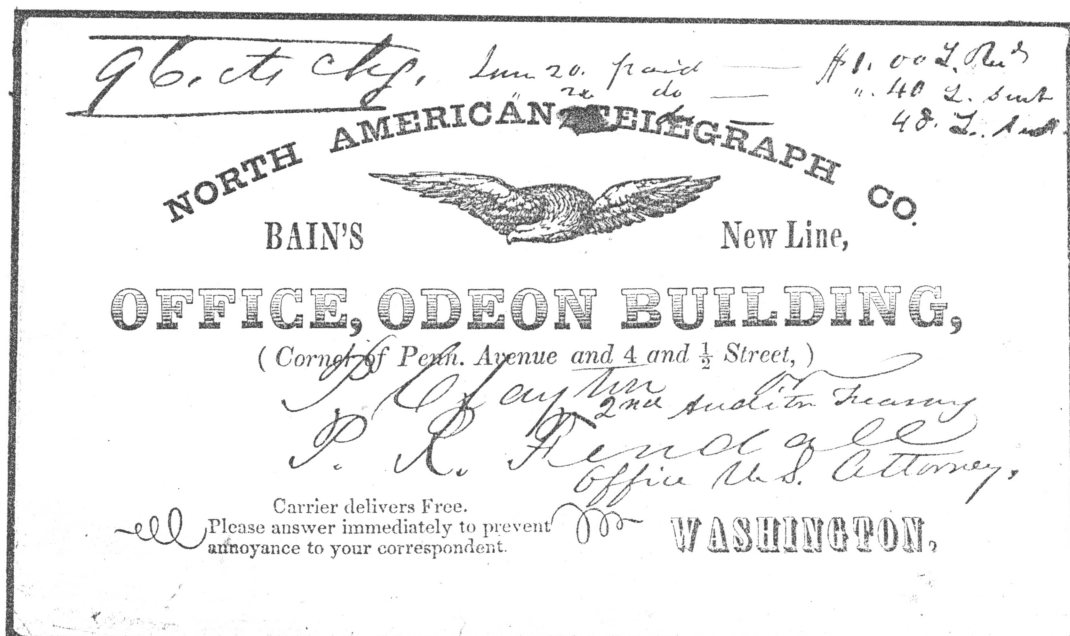 96. cts chg. Jun 20. paid — $1.00 T. Rec'd
" 20 do — ". 40 T. sent
— 48. T.
NORTH AMERICAN TELEGRAPH CO.
BAIN'S New Line,
OFFICE, ODEON BUILDING,
( Corner of Penn. Avenue and 4 and ½ Street, )
P Clayton
2nd Auditor Treasury
P. R. Fendall
Office U.S. Attorney.
Carrier delivers Free.
Please answer immediately to prevent
annoyance to your correspondent.
WASHINGTON,